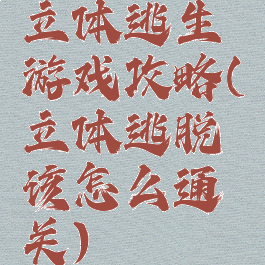 立体逃生
游戏攻略(
立体逃脱
该怎么通
关)